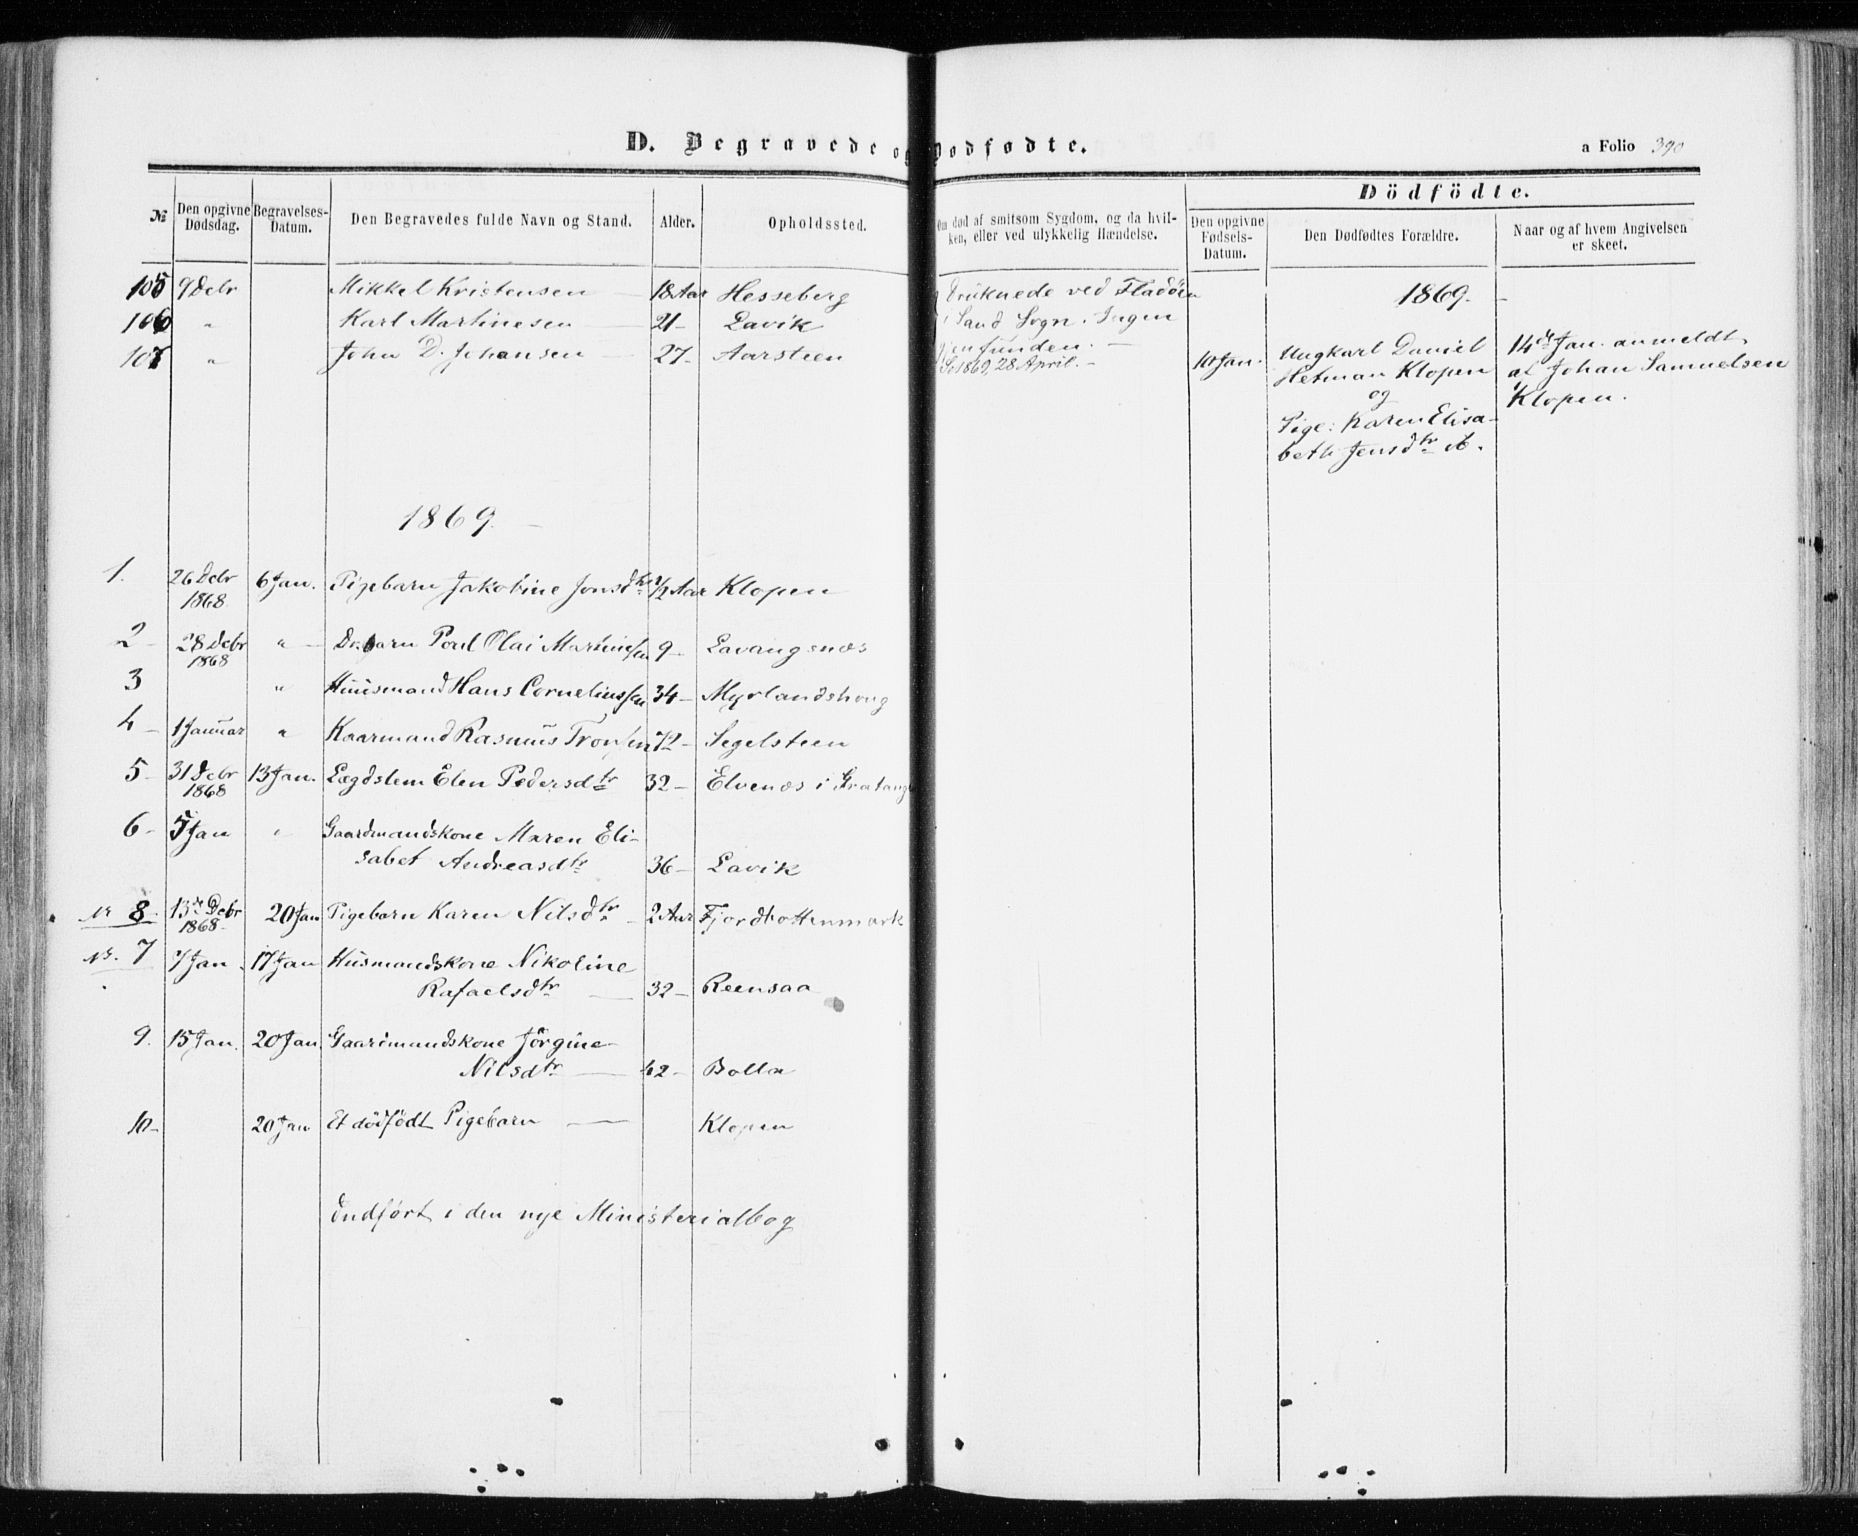 D. Begravede og Dødfødte.
a Folio 390
Dödfödte.
№ | Den opgivne Dødsdag. | Begravelses-Datum. | Den Begravedes fulde Navn og Stand. | Alder. | Opholdssted. | Om død af smitsom Sygdom, og da hvilken, eller ved ulykkelig Hændelse. | Den opgivne Fødsels-Datum. | Den Dødfødtes Forældre. | Naar og af hvem Angivelsen er skeet.
105 9 Debr Mikkel Kristensen 18 Aar Hesseberg
106 " Karl Martinesen 21 - Lavik
107 " John D. Johansen 27 - Aarsteen
Druknede ved Fladöen
i Sand Sogn. Ingen
gjenfunden. -
Se 1869, 28 April. -
1869. -
10 Jan. Ungkarl Daniel
Hetman Klopen
og
Pige: Karen Elisa-
beth Jensdtr
14de Jan. anmeldt
af Johan Samuelsen
Klopen.
1869. -
1. 26 Debr 1868. 6 Jan. Pigebarn Jakobine Jonsdtr 1/2 Aar Klopen
2 - 28 Debr 1868 " Dr.barn Poul Olai Martinessen 9 - Lavangsnæs
3 " Huusmand Hans Corneliussen 34 - Myrlandshoug
4 - 1 Januar " Kaarmand Rasmus Tronsen 72 - Segelsteen
5 - 31 Debr 1868 13 Jan. Lægdslem Elen Pedersdtr 32 - Elvenæs i Gratang
6 - 5 Jan " Gaardmandskone Maren Eli-
sabet Andreasdtr 36 - Lavik
Nr 8. 13de Debr 1868. 20 Jan Pigebarn Karen Nilsdtr 2 Aar Fjordbottenmark
Nr. 7 7 Jan. 17 Jan Husmandskone Nikoline
Rafaelsdtr 32 - Reensaa
9. 15 Jan. 20 Jan. Gaardmandskone Jörgine
Nilsdtr 42 - Bolla
10 - 20 Jan Et dödfödt Pigebarn Klopen
Indført i den nye Ministerialbog